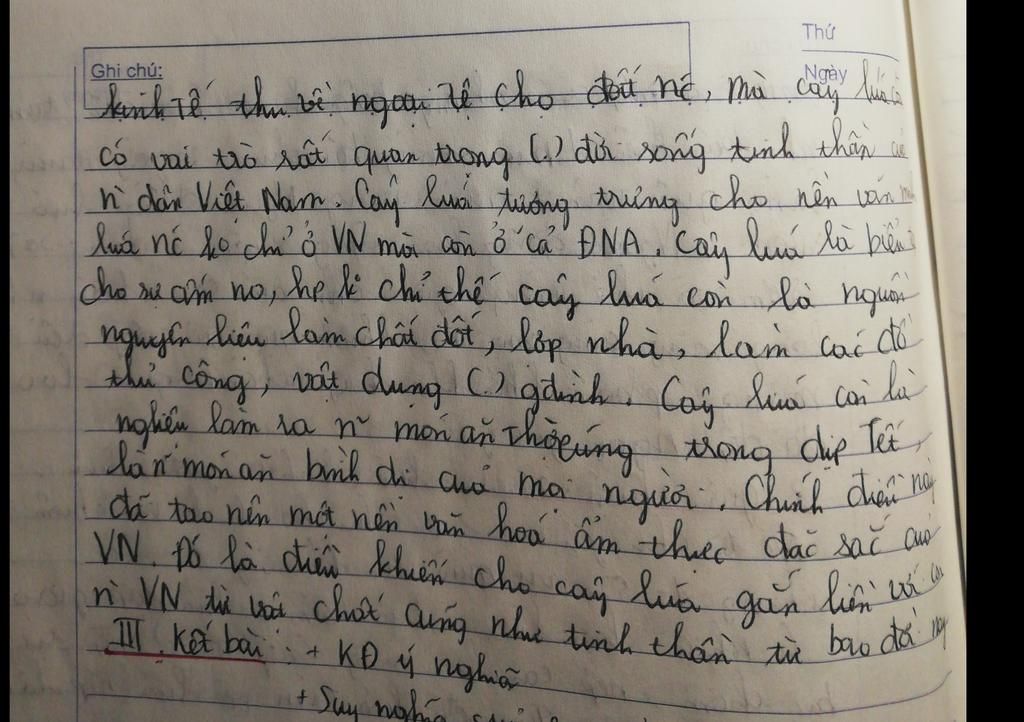 Thứ
Ghi chú:
Ngày
kinh tế thu về ngoại tệ cho đất nc, mà cây lúa
có vai trò rất quan trọng (.) đời sống tinh thần
n` dân Việt Nam. Cây lúa tượng trưng cho nền văn
lúa nc ko chỉ ở VN mà còn ở cả ĐNA. Cây lúa là biểu
cho sự ấm no, hp k chỉ thế cây lúa còn là nguồn
nguyên liệu làm chất đốt, lợp nhà, làm các đồ
thủ công, vật dụng (.) gđình. Cây lúa còn là
nghliệu làm ra n~ món ăn thờ cúng trong dịp Tết,
là n~ món ăn bình dị của mọi người. Chính điều này
đã tạo nên một nền văn hoá ẩm thực đặc sắc của
VN. Đó là điều khiến cho cây lúa gắn liền với
n` VN từ vật chất cũng như tinh thần từ bao đời nay
III. Kết bài: + KĐ ý nghĩa
+ Suy nghĩ